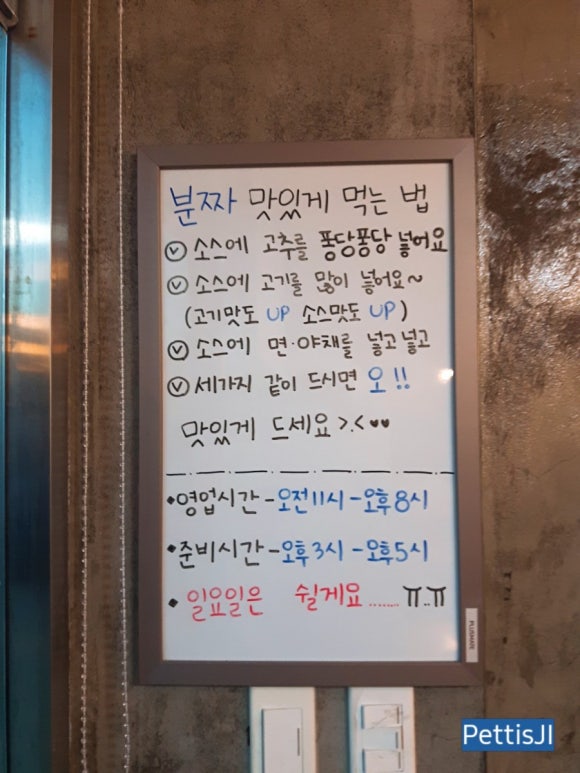 분짜 맛있게 먹는 법
소스에 고추를 퐁당퐁당 넣어요
소스에 고기를 많이 넣어요~
(고기맛도 UP 소스맛도 UP)
소스에 면·야채를 넣고 넣고
세가지 같이 드시면 오!!
맛있게 드세요 >.< ♥♥
•영업시간 - 오전11시 - 오후8시
•준비시간 - 오후3시 - 오후5시
• 일요일은 쉴게요....... ㅠ..ㅠ
PLUSMATE
PettisJI